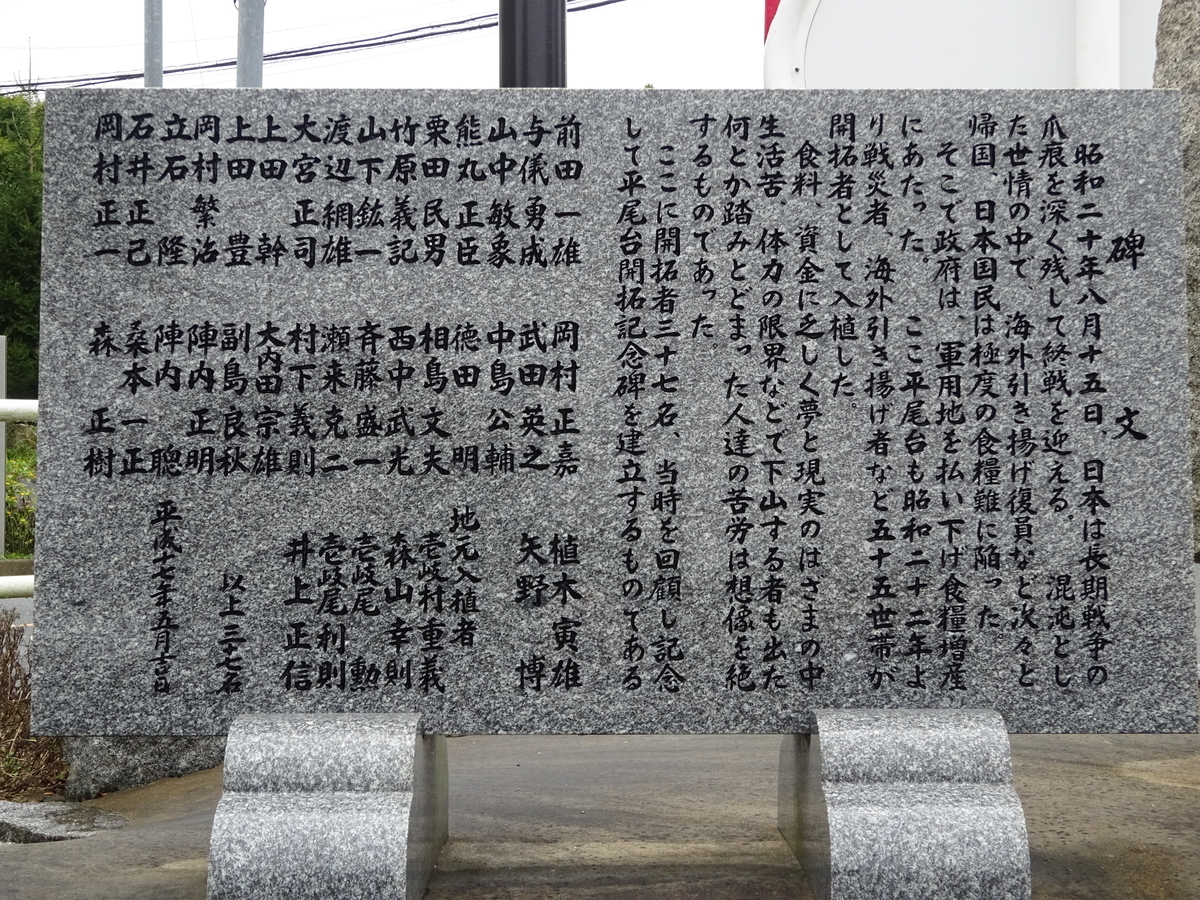 碑文
昭和二十年八月十五日、日本は長期戦争の
爪痕を深く残して終戦を迎える。混沌とし
た世情の中で、海外引き揚げ復員など次々と
帰国、日本国民は極度の食糧難に陥った。
そこで政府は、軍用地を払い下げ食糧増産
にあたった。ここ平尾台も昭和二十二年よ
り戦災者、海外引き揚げ者など五十五世帯が
開拓者として入植した。
食料、資金に乏しく夢と現実のはざまの中
生活苦、体力の限界などで下山する者も出た
何とか踏みとどまった人達の苦労は想像を絶
するものであった。
ここに開拓者三十七名、当時を回顧し記念
して平尾台開拓記念碑を建立するものてある
前田一雄
与儀勇成
山中敏象
熊丸正臣
栗田民男
竹原義記
山下鉱一
渡辺網雄
大宮正司
上田幹
上田豊
岡村繁治
立石隆
石井正己
岡村正一
岡村正嘉
武田英之
中島公輔
徳田明
相島文夫
西中武光
斉藤盛一
瀬来克二
村下義則
大内田宗雄
副島良秋
陣内正明
陣内聰
桑本一正
森正樹
植木寅雄
矢野博
地元入植者
壱岐村重義
森山幸則
壱岐尾勲
壱岐尾利則
井上正信
以上三十七名
平成十七年五月吉日